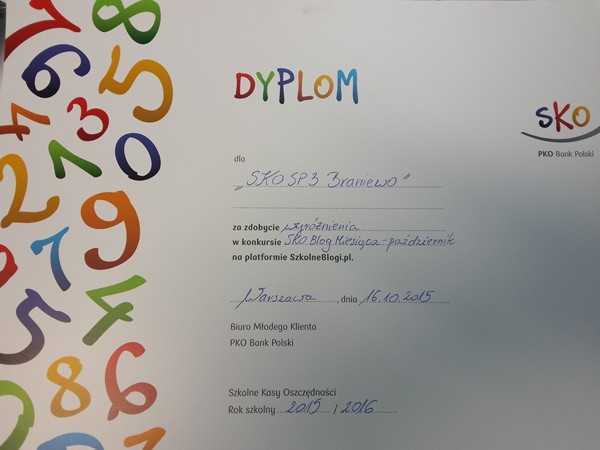 DYPLOM
SKO
PKO Bank Polski
dla
„SKO SP3 Braniewo"
za zdobycie wyróżnienia
w konkursie SKO Blog Miesiąca - październik
na platformie SzkolneBlogi.pl.
Warszawa, dnia 16.10.2015
Biuro Młodego Klienta
PKO Bank Polski
Szkolne Kasy Oszczędności
Rok szkolny 2015 / 2016